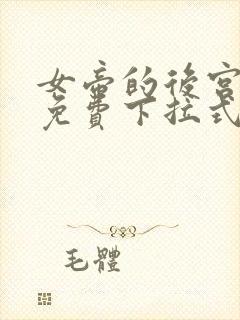 女帝的後宮
免費下拉式
毛體